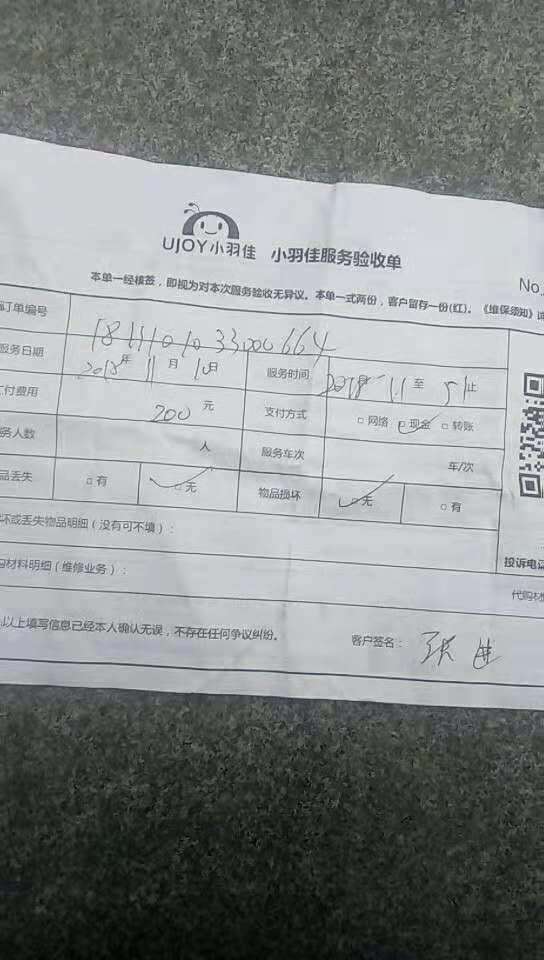 UJOY小羽佳 小羽佳服务验收单
No.
本单一经核签，即视为对本次服务验收无异议。本单一式两份，客户留存一份(红)。《维保须知》
订单编号 1811101033000664
服务日期 2018年11月10日 服务时间 至 止
付费用 200元 支付方式 □网络 □现金 □转账
务人数 人 服务车次 车/次
品丢失 □有 □无 物品损坏 □无 □有
坏或丢失物品明细（没有可不填）：
投诉电话
购材料明细（维修业务）：
代购材
以上填写信息已经本人确认无误，不存在任何争议纠纷。 客户签名： 张进